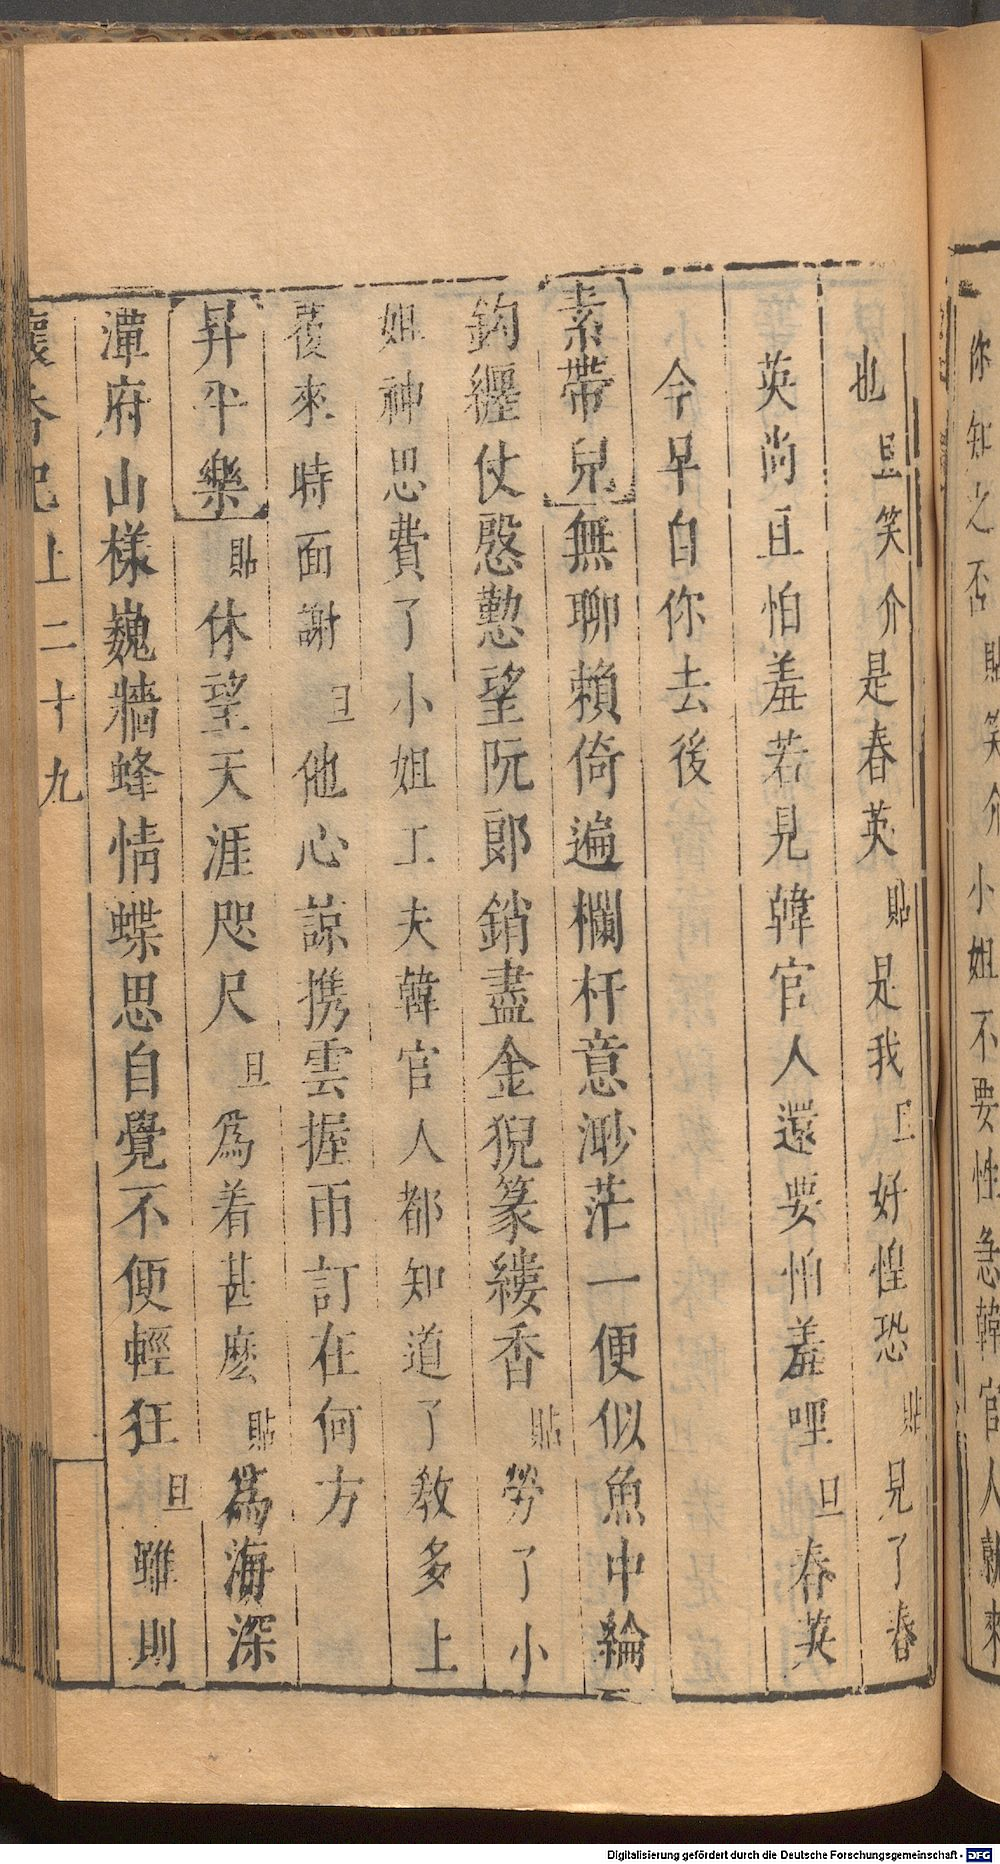 你知之否貼笑介小姐不要性急韓官人就來
也旦笑介是春英貼是我上好惶恐貼見了春
英尚且怕羞若見韓官人還要怕羞哩旦春英
今早自你去後
素帶兒無聊賴倚遍欄杆意渺茫一便似魚中綸
鈎纒仗慇懃望阮郎銷盡金猊篆縷香貼勞了小
姐神思費了小姐工夫韓官人都知道了教多上
覆來時面謝旦他心諒携雲握雨訂在何方
昇平樂貼休望天涯咫尺旦爲着甚麽貼爲海深
潭府山樣巍牆蜂情蝶思自覺不便輕狂旦雖則
懷香記上二十九
Digitalisierung gefördert durch die Deutsche Forschungsgemeinschaft - DFG